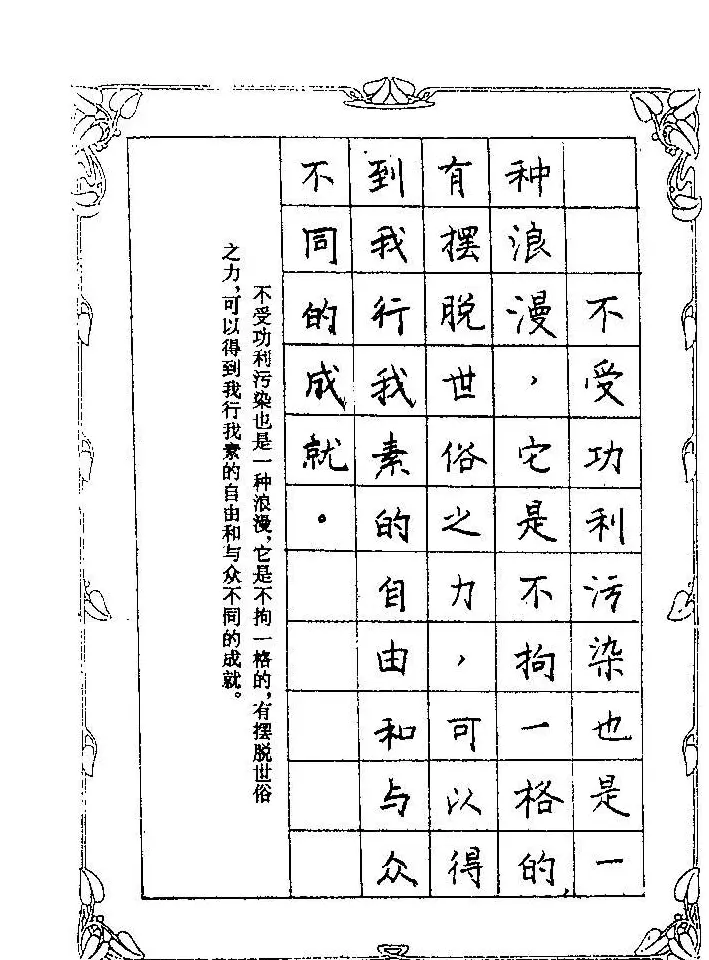 不受功利污染也是一
种浪漫，它是不拘一格的，
有摆脱世俗之力，可以得
到我行我素的自由和与众
不同的成就。
不受功利污染也是一种浪漫，它是不拘一格的，有摆脱世俗
之力，可以得到我行我素的自由和与众不同的成就。